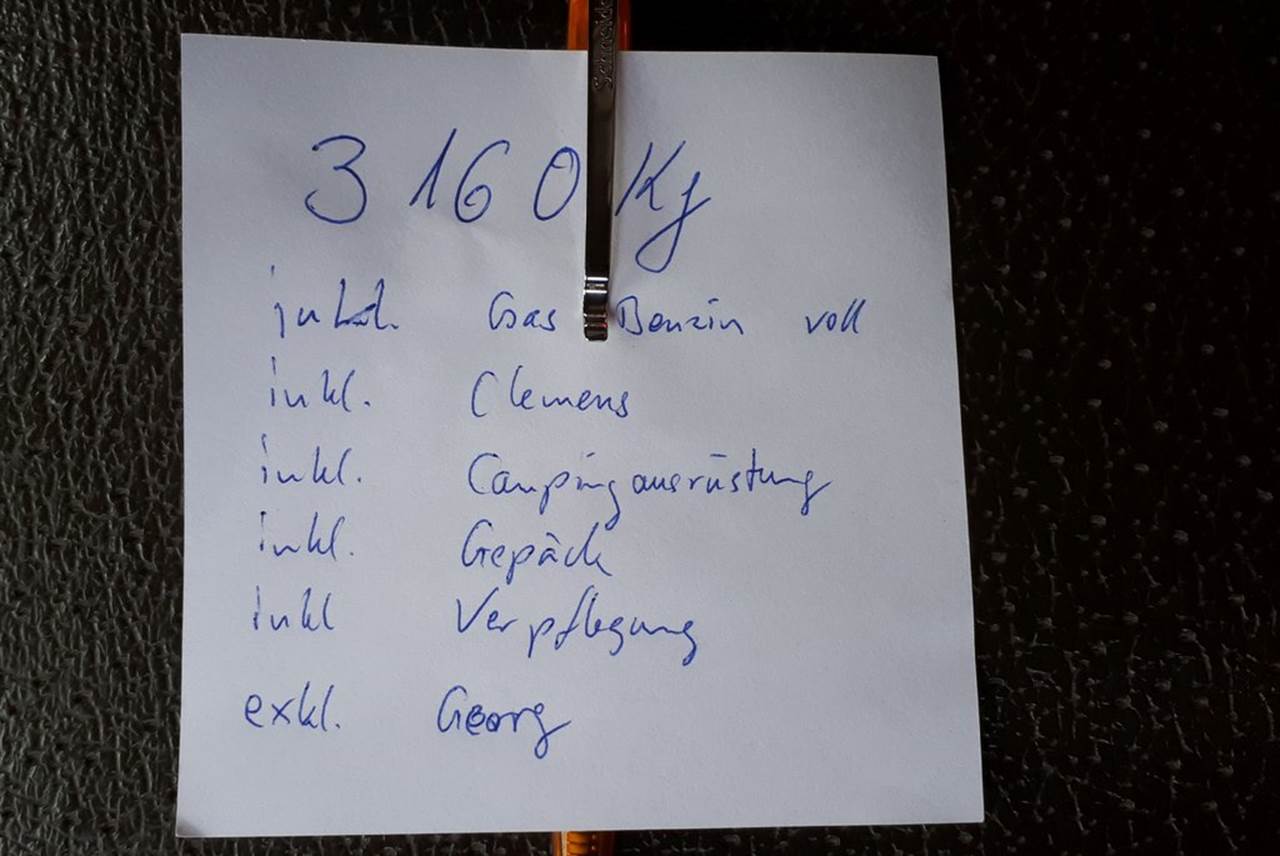 Schneider
3160 Kg
inkl. Gas Benzin voll
inkl. Clemens
inkl. Campingausrüstung
inkl. Gepäck
inkl Verpflegung
exkl. Georg